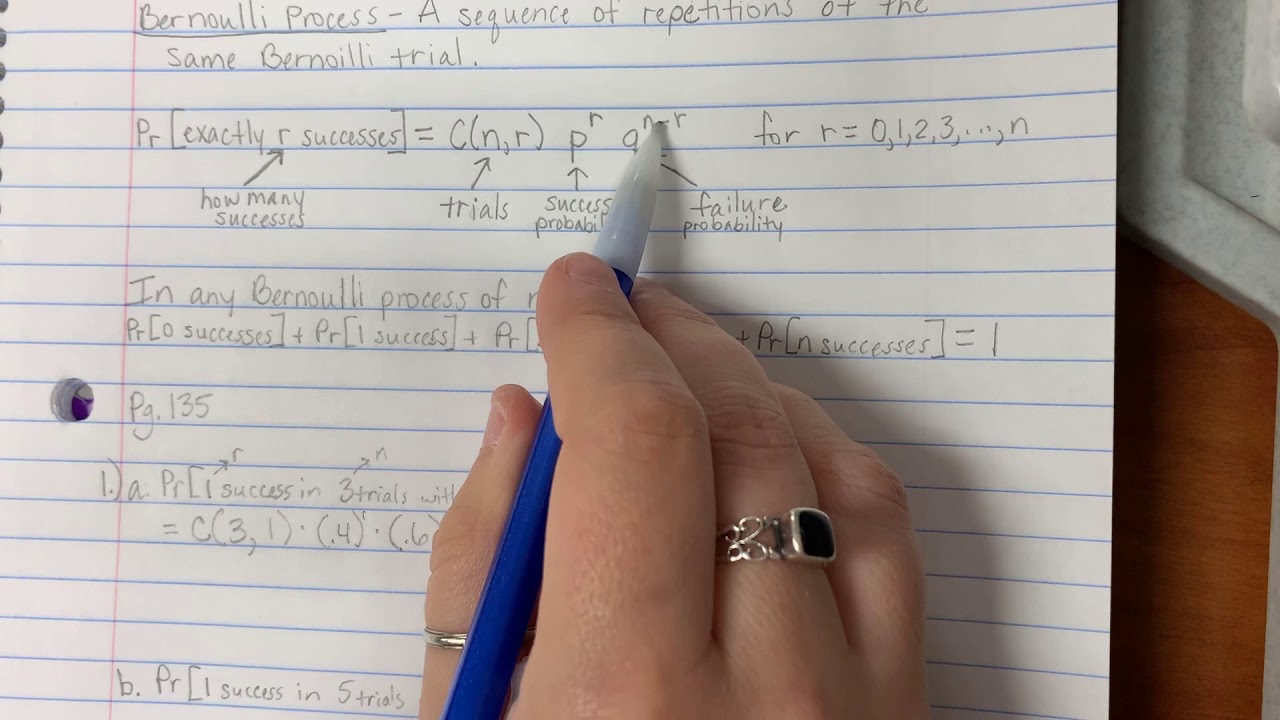 Bernoulli Process - A sequence of repetitions of the
same Bernoilli trial.
Pr[exactly r successes] = C(n,r) p^r q^n-r for r = 0,1,2,3,...,n
how many successes
trials
success
failure probability
In any Bernoulli process of
Pr[0 successes] + Pr[1 success] + Pr[ + Pr[n successes] = 1
Pg. 135
r n
1.) a. Pr[1 success in 3 trials with
= C(3,1) · (.4)^1 · (.6)
b. Pr[1 success in 5 trials